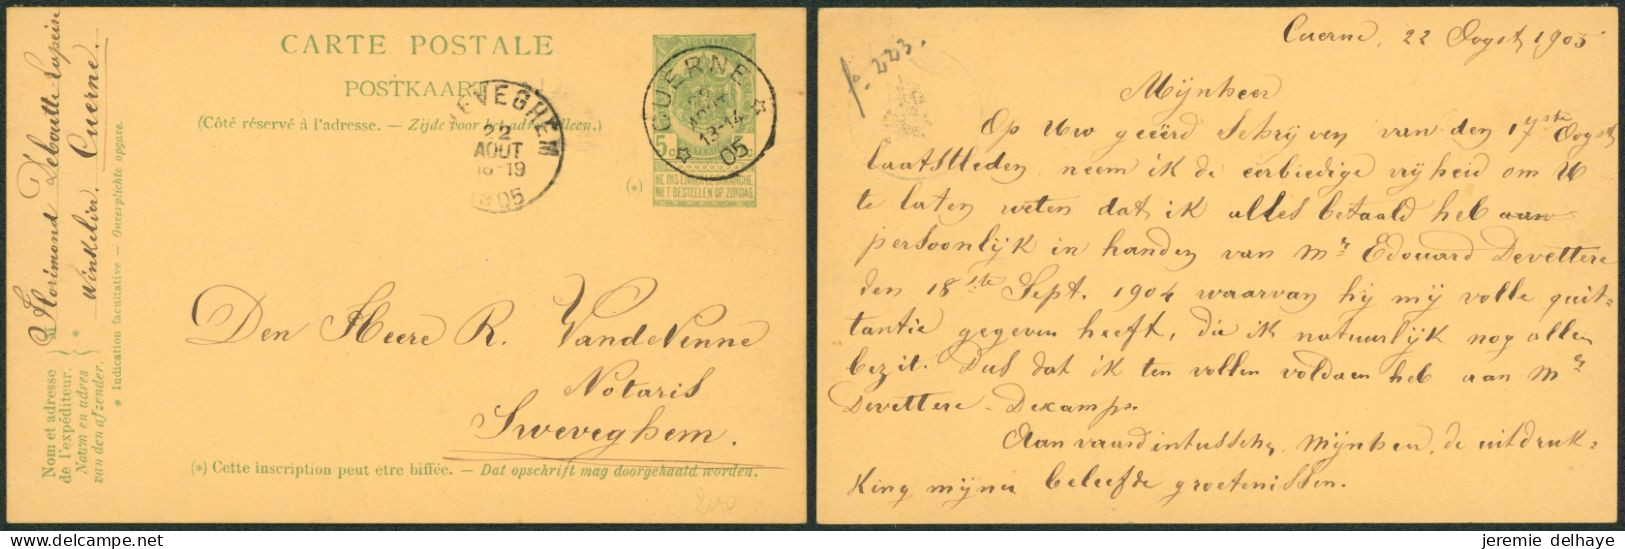 CARTE POSTALE
POSTKAART
(Côté réservé à l'adresse. — Zijde voor het adres alleen.)
SWEVEGHEM
22
AOUT
18-19
05
CUERNE
22
AOUT
13-14
05
5c
NE PAS LIVRER LE DIMANCHE
NIET BESTELLEN OP ZONDAG
(*)
Nom et adresse
de l'expéditeur.
Naam en adres
van den afzender.
Florimond Deboutte-Lapeire
Winkelier. Cuerne.
* Indication facultative — Onverplichte opgave.
Den Heere R. VandeVenne
Notaris
Sweveghem.
(*) Cette inscription peut être biffée. — Dat opschrift mag doorgehaald worden.
Cuerne, 22 Oogst 1905
223.
Mijnheer
Op Uw geëerd schrijven van den 17ste Oogst
laatstleden neem ik de eerbiedige vrijheid om U
te laten weten dat ik alles betaald heb aan
persoonlijk in handen van Mr Edouard Devettere
den 18ste Sept. 1904 waarvan hij mij volle quit-
tantie gegeven heeft, die ik natuurlijk nog allen
bezit. Dus dat ik ten vollen voldaen heb aan Mr
Devettere-Dekamps.
Aanvaard intusschen, Mijnheer, de uitdruk-
king mijner beleefde groetenissen.
jeremie delhaye